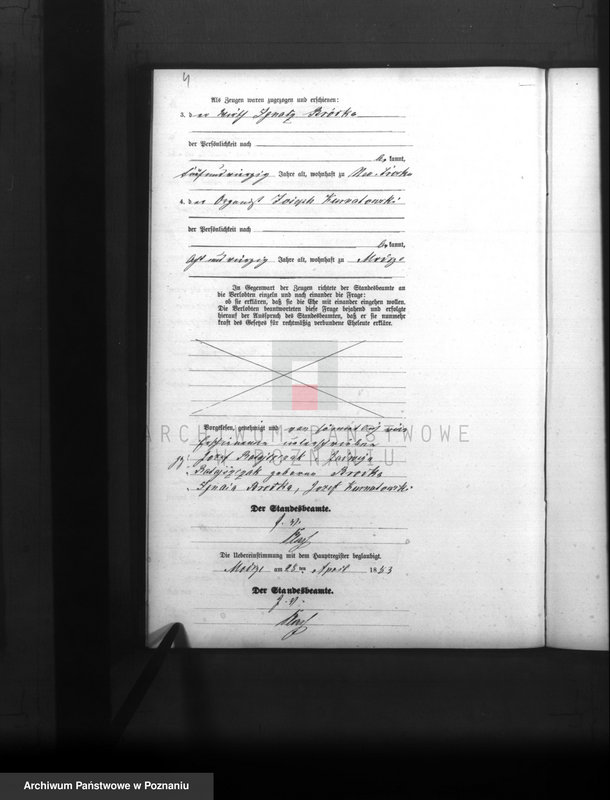 4
Als Zeugen waren zugezogen und erschienen:
3. der Wirth Ignatz Brostka
der Persönlichkeit nach
be kannt,
fünfundvierzig Jahre alt, wohnhaft zu
4. der Organist Joseph Kurnatowski
der Persönlichkeit nach
be kannt,
acht und vierzig Jahre alt, wohnhaft zu
In Gegenwart der Zeugen richtete der Standesbeamte an
die Verlobten einzeln und nach einander die Frage:
ob sie erklären, daß sie die Ehe mit einander eingehen wollen.
Die Verlobten beantworteten diese Frage bejahend und erfolgte
hierauf der Ausspruch des Standesbeamten, daß er sie nunmehr
kraft des Gesetzes für rechtmäßig verbundene Eheleute erkläre.
ARCHIWUM PAŃSTWOWE
W POZNANIU
Vorgelesen, genehmigt und von sämmtlichen
Erschienenen unterschrieben
Józef, Jadwiga
geborene Brostka
Brostka, Józef Kurnatowski
Der Standesbeamte.
J. V.
Die Uebereinstimmung mit dem Hauptregister beglaubigt.
am 28 ten April 1883
Der Standesbeamte.
J. V.
Archiwum Państwowe w Poznaniu